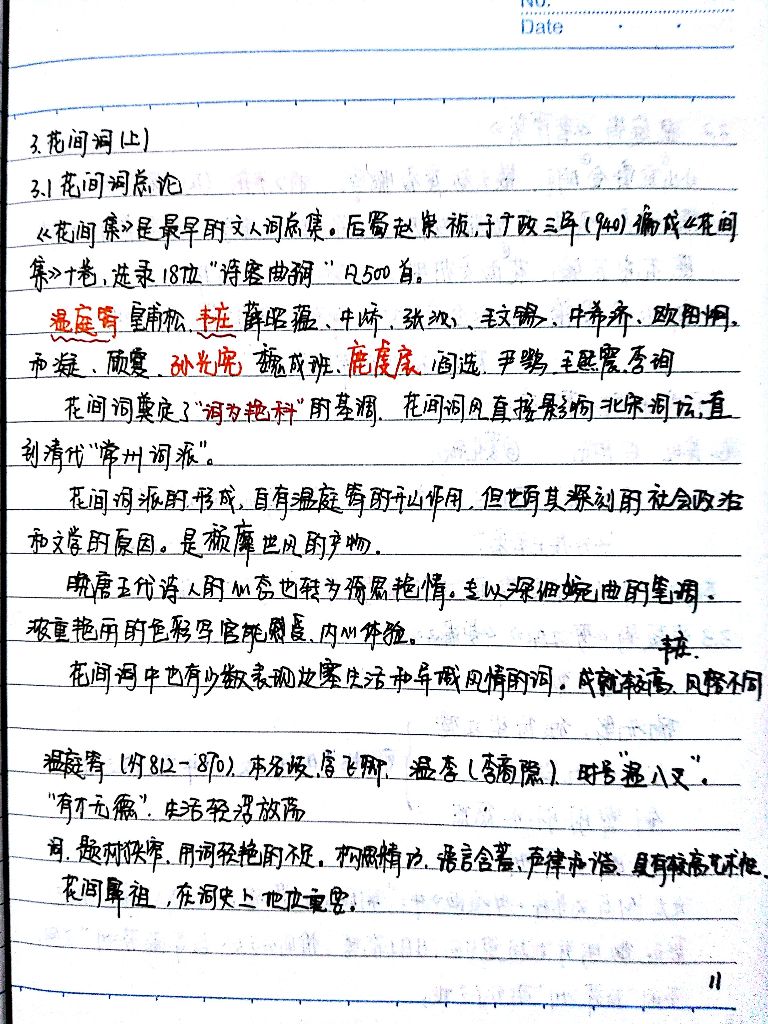 No.
Date
3.花间词(上)
3.1花间词总论
《花间集》是最早的文人词总集。后蜀赵崇祯,于广政三年(940)编成《花间
集》十卷,选录18位“诗客曲子词”凡500首。
温庭筠 皇甫松、韦庄 薛昭蕴、牛峤、张泌、毛文锡、牛希济、欧阳炯、
和凝、顾夐、孙光宪 魏承班、鹿虔扆 阎选、尹鹗、毛熙震、李珣
花间词奠定了“词为艳科”的基调,花间词风直接影响北宋词坛,直
到清代“常州词派”。
花间词派的形成,自有温庭筠的开山作用,但也有其深刻的社会政治
和文学的原因。是颓靡世风的产物。
晚唐五代诗人的心态也转为绮思艳情。专以深细婉曲的笔调、
浓重艳丽的色彩写官能感受、内心体验。
韦庄.
花间词中也有少数表现边塞生活和异域风情的词。成就较高、风格不同
温庭筠(约812-870),本名岐,字飞卿, 温李(李商隐)、时号“温八叉”。
“有才无德”、生活轻浮放荡
词.题材狭窄、用词轻艳的不足。构思精巧、语言含蓄、声律和谐、具有较高艺术性、
花间鼻祖,在词史上地位重要。
11